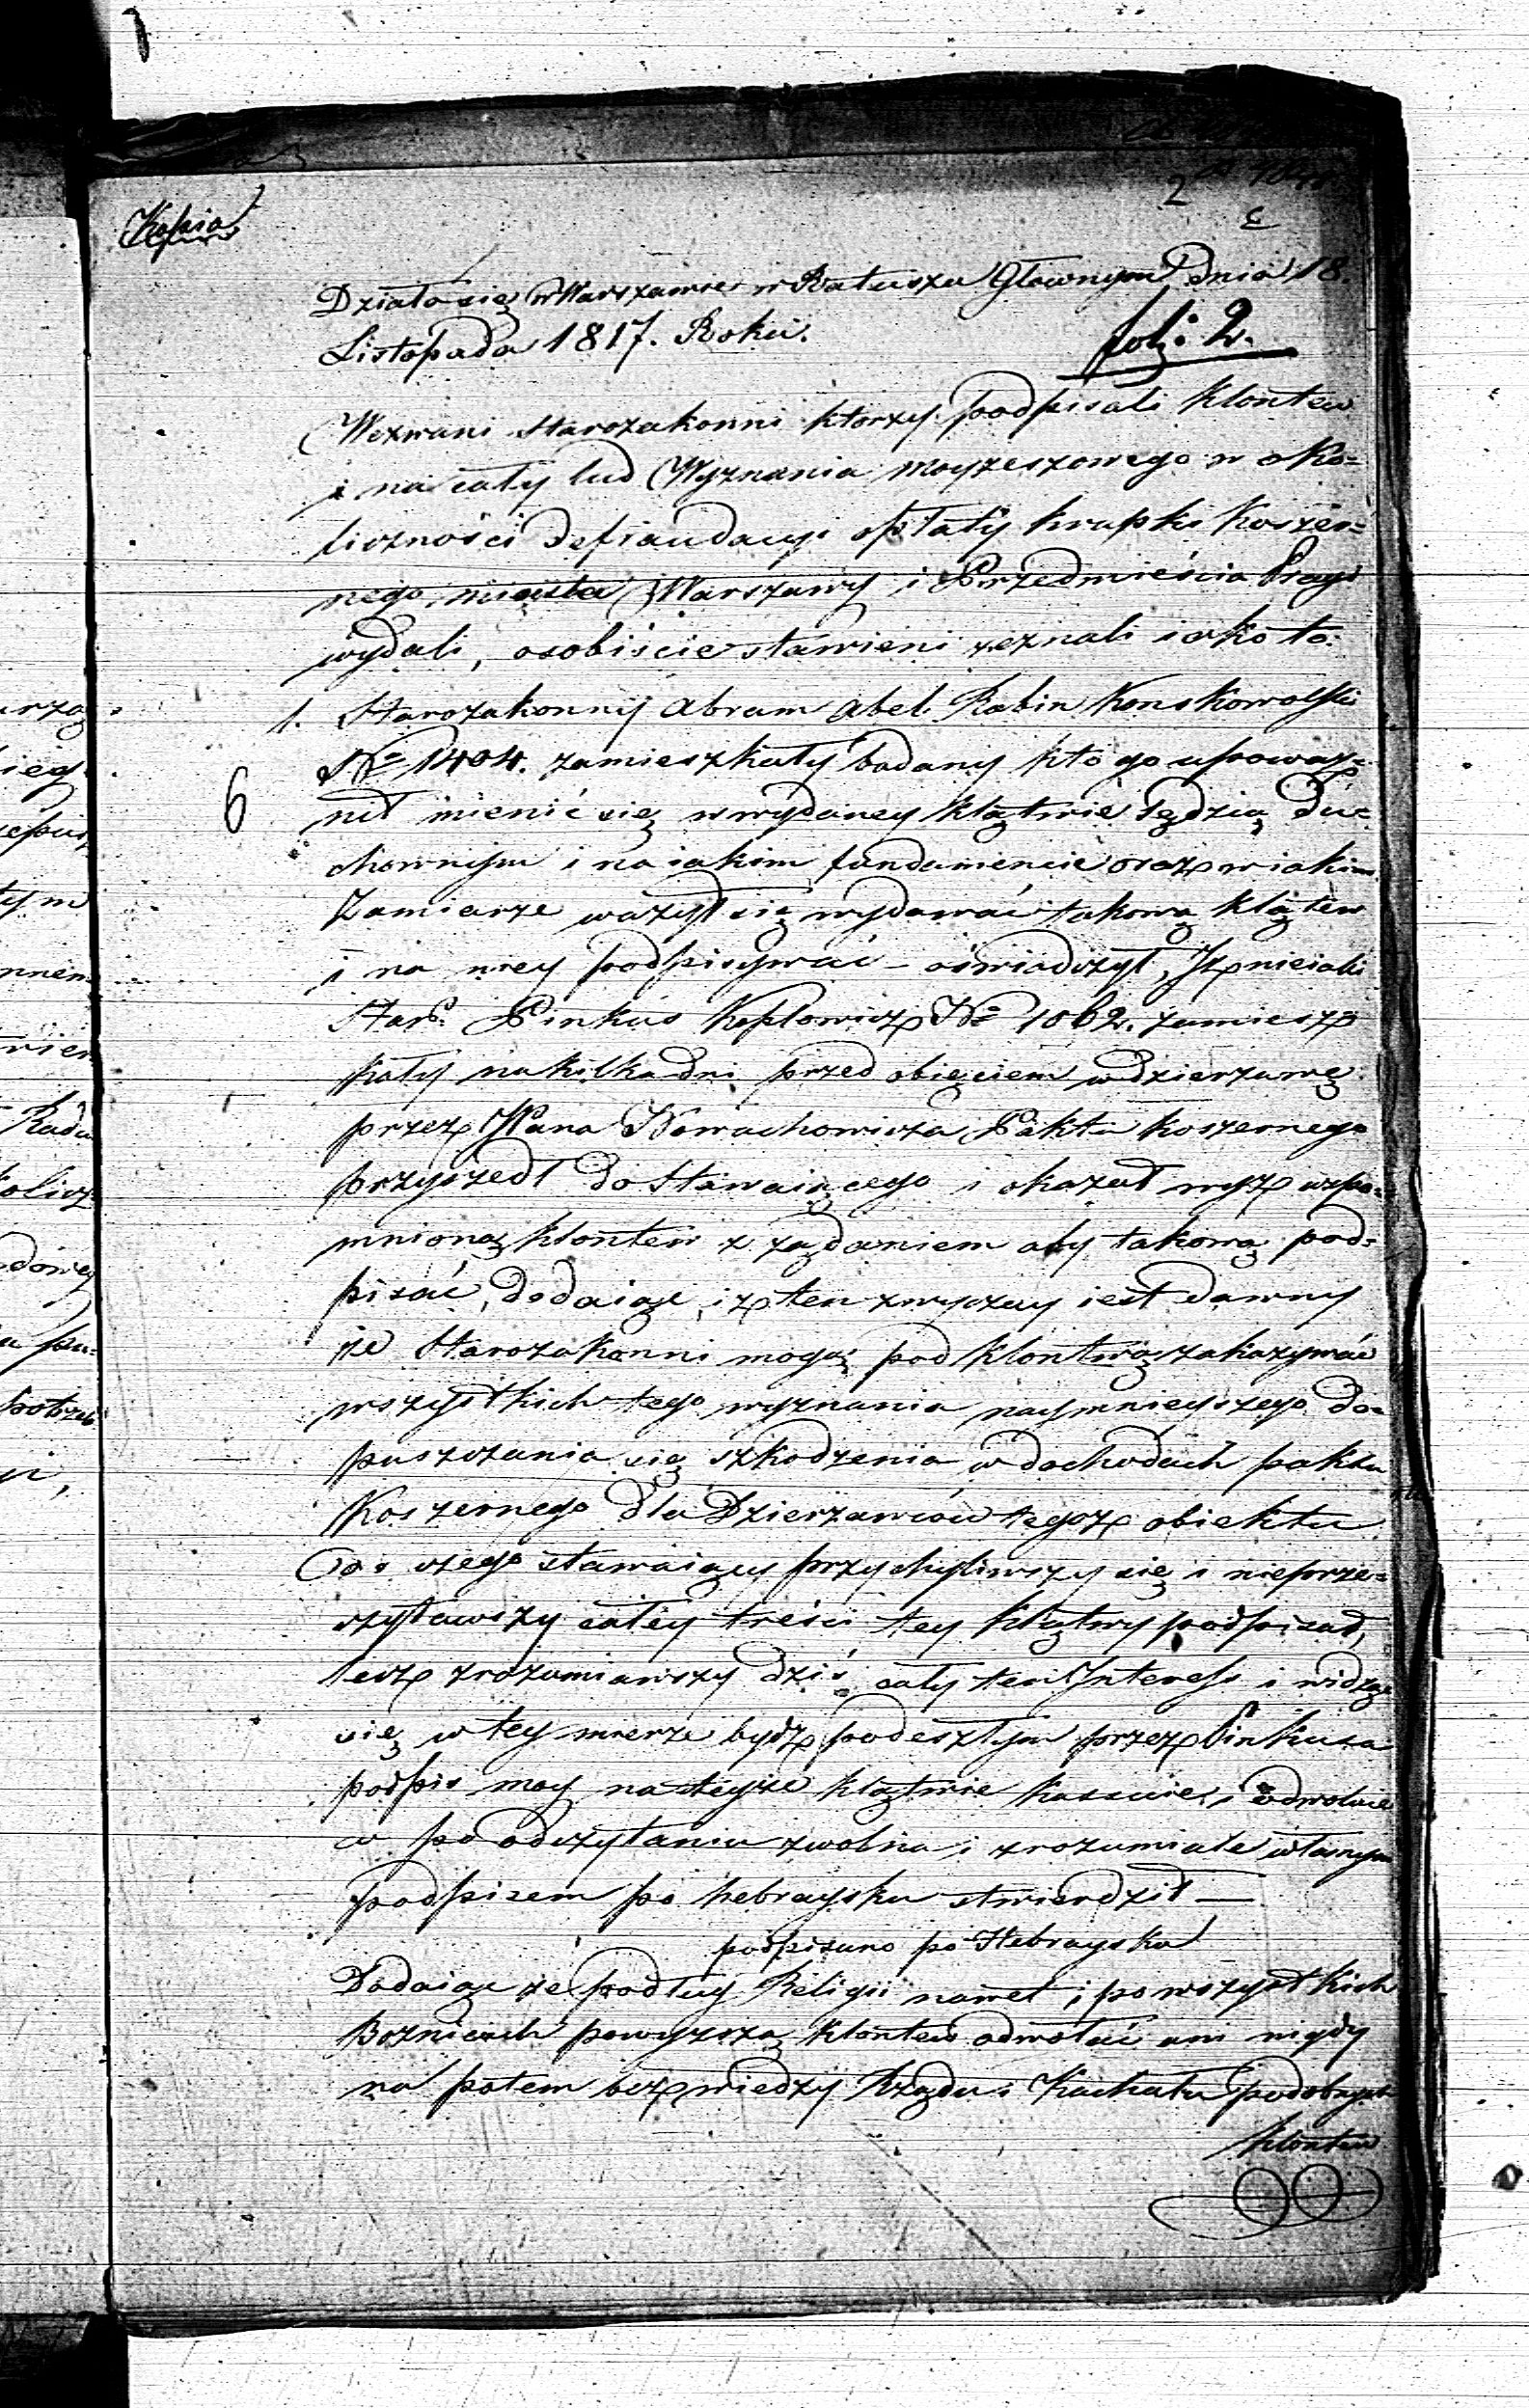 Kopia
2
Działo się w Warszawie w Ratuszu Głownym dnia 18.
Listopada 1817. Roku.
folj: 2.
Wezwani starozakonni ktorzy podpisali Klontew
i na cały lud Wyznania Moyżeszowego w oko=
liczności defraudacyi opłaty krupki Koszer=
nego miasta Warszawy i Przedmieścia Pragi
wydali, osobiście stawieni zeznali iako to:
1. Starozakonny Abram Abel Rabin Konskowolski
6
No 1404. zamieszkały badany kto go upoważ=
nił mienić się w wydaney klątwie Sędzią du=
chownym i na iakim fundamencie oraz w iakim
Zamiarze ważył się wydawać takową klątew
i na niey podpisywać – oświadczył, Iż nieiaki
Star. Pinkus Keplowicz No 1062. zamiesz
kały na kilka dni przed obięciem w dzierzawę
przez JPana Nowachowicza Paktu koszernego
przyszedł do Stawaiącego i okazał wyż wspo=
mnioną klontew z żądaniem aby takową pod=
pisać, dodaiąc, iż ten zwyczay iest dawny
że Starozakonni mogą pod klontwą zakazywać
wszystkich tego wyznania naymnieyszego do=
puszczania się szkodzenia w dochodach paktu
Koszernego dla Dzierzawców tegoż obiektu
Do czego stawaiący przychyliwszy się i nieprze=
czytawszy całey treści tey klątwy podpisał,
lecz zrozumiawszy dziś cały ten Interess i widząc
się w tey mierze bydź podeszłym przez Pinkusa
podpis moy na teyże klątwie kassuie i odwołuie
a po odczytaniu zwolna i zrozumiale własnym
podpisem po hebraysku stwierdził —
podpisano po Hebraysku
Dodaiąc że podług Religii nawet i po wszystkich
Bożnicach powyższą klontew odwołać ani nigdy
na potem bez wiedzy Rządu i Kachału podobnych
klontew